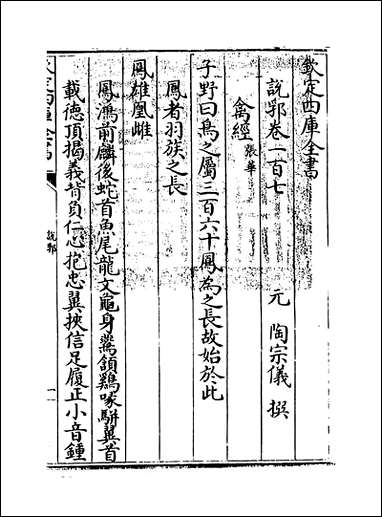 欽定四庫全書
說郛卷一百七
元 陶宗儀 撰
禽經 張華
子野曰鳥之屬三百六十鳳為之長故始於此
鳳者羽族之長
鳳雄凰雌
鳳鴻前麟後蛇首魚尾龍文龜身燕頷鷄喙駢翼首
載德頂揭義背負仁心抱忠翼挾信足履正小音鍾
說郛